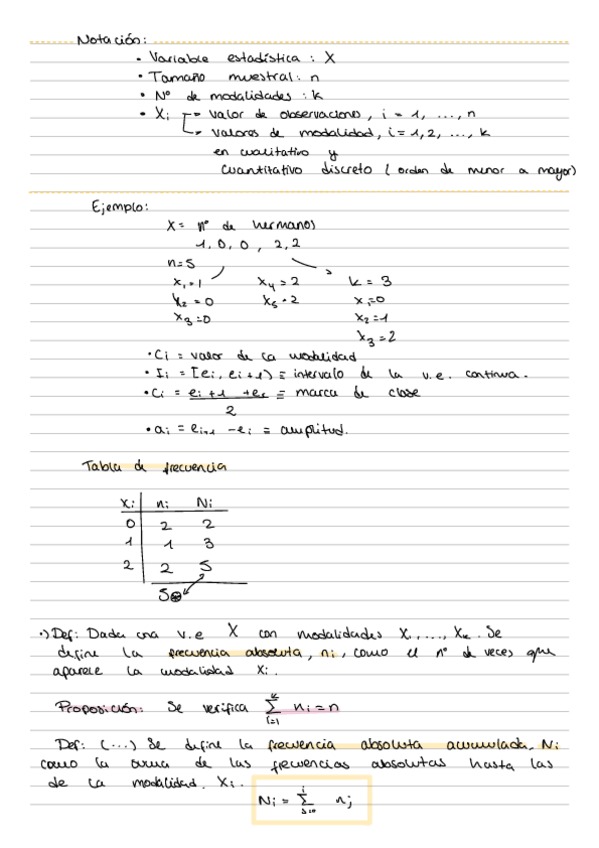 Notación:
• Variable estadística : X
• Tamaño muestral: n
• Nº de modalidades : k
• Xi → valor de observaciones, i = 1, ..., n
→ valores de modalidad, i = 1, 2, ..., k
en cualitativo y
cuantitativo discreto ( orden de menor a mayor)
Ejemplo:
X = nº de hermanos
1, 0, 0, 2, 2
n=5
x₁=1 x₄=2 k = 3
x₂=0 x₅=2 x₁=0
x₃=0 x₂=1
x₃=2
• Ci = valor de la modalidad
• Ii = [ei, ei+1) ≡ intervalo de la v.e. continua.
• Ci = (ei+1 + ei)/2 ≡ marca de clase
• ai = ei+1 - ei ≡ amplitud.
Tabla de frecuencia
Xi ni Ni
0 2 2
1 1 3
2 2 5
5
•) Def: Dada una v.e X con modalidades X₁, ..., Xk. Se
define la frecuencia absoluta, ni, como el nº de veces que
aparece la modalidad Xi.
Proposición: Se verifica Σ i=1 k ni = n
Def: (...) Se define la frecuencia absoluta acumulada, Ni
como la suma de las frecuencias absolutas hasta las
de la modalidad. Xi.
Ni = Σ i nj